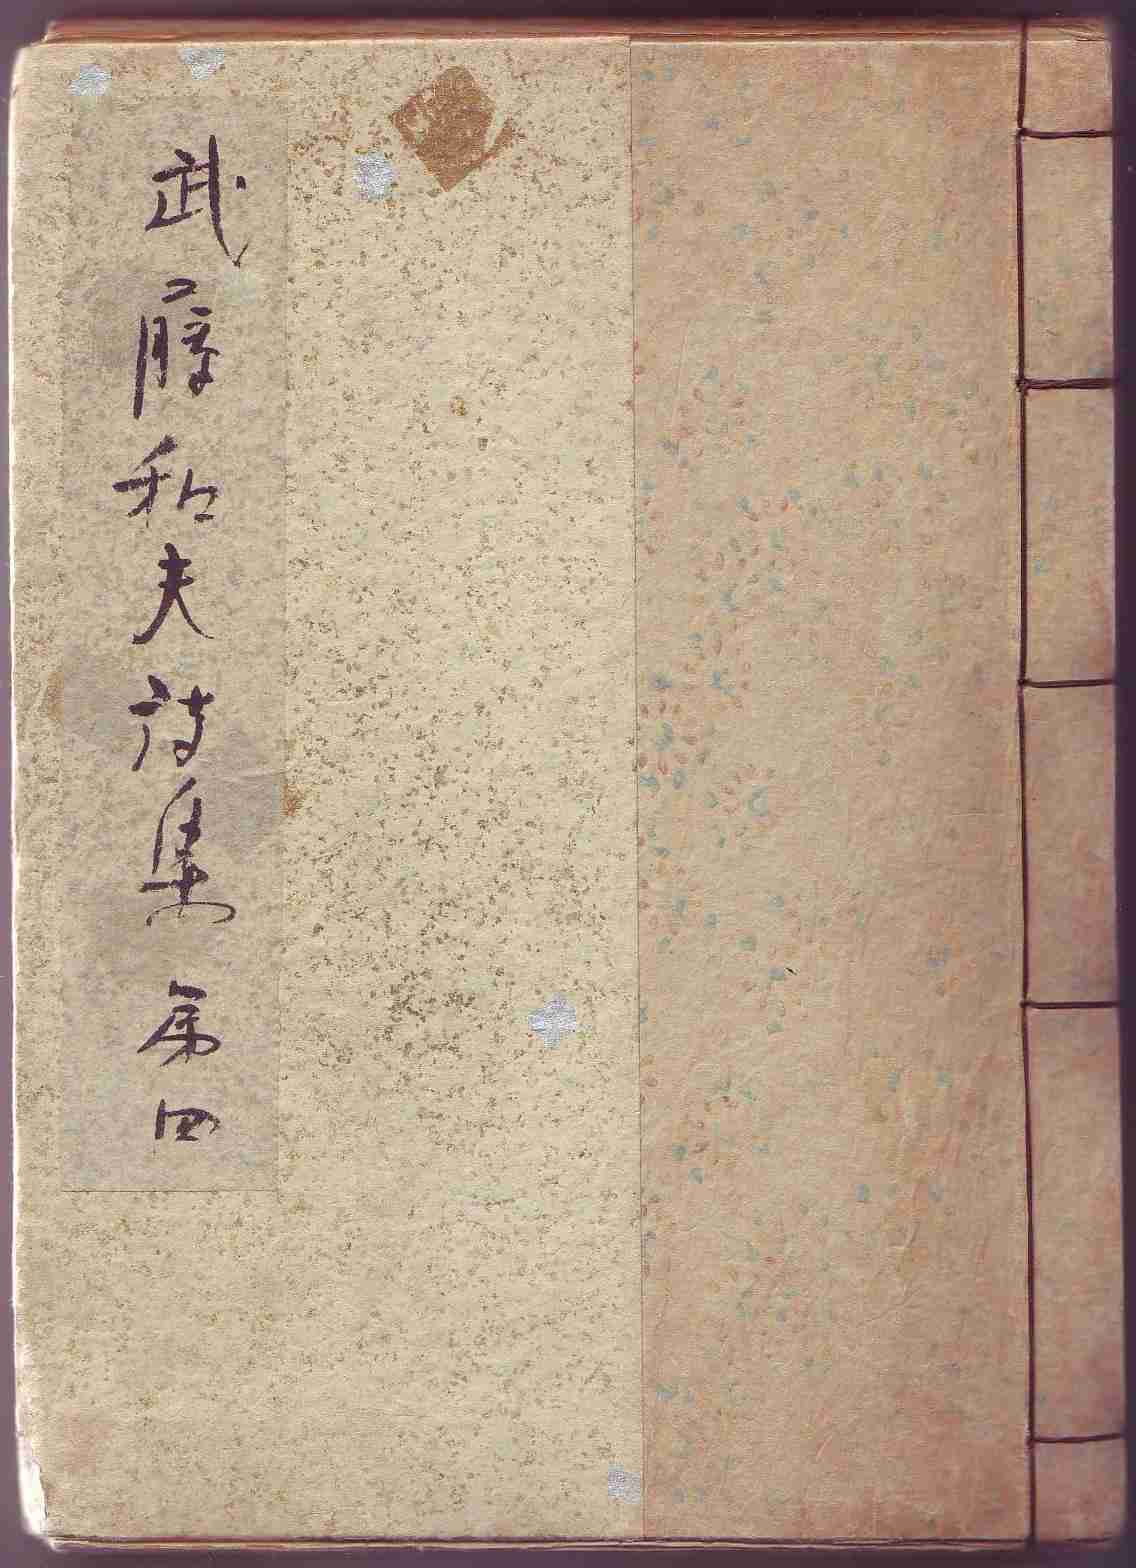 武藤和夫詩集 第四